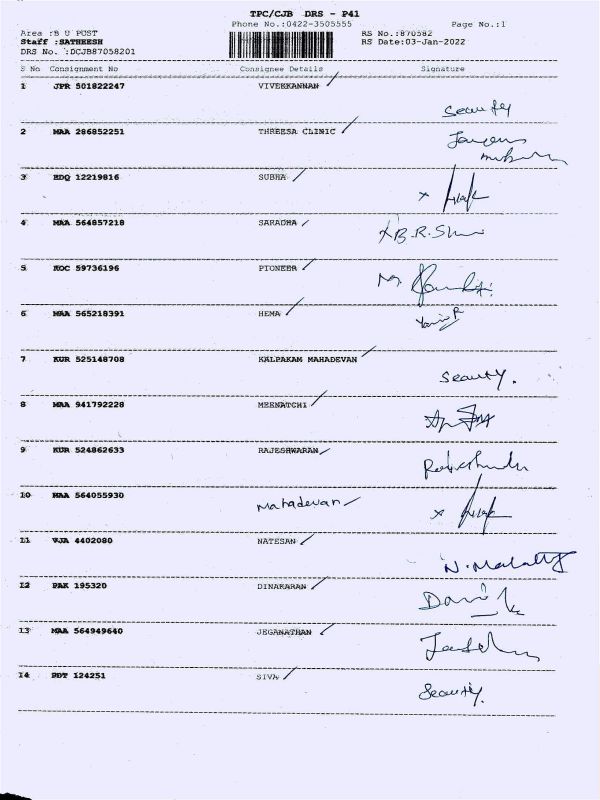 TPC/CJB DRS - P41
Phone No.:0422-3505555 Page No.:1
Area :B U POST RS No.:870582
Staff :SATHEESH RS Date:03-Jan-2022
DRS No. :DCJB87058201
S No Consignment No Consignee Details Signature
1 JPR 501822247 VIVEKKANNAN
Security
2 MAA 286852251 THREESA CLINIC
3 EDQ 12219816 SUBHA
x
4 MAA 564857218 SARADHA
x B.R.
5 KOC 59736196 PIONEER
M.
6 MAA 565218391 HEMA
7 KUR 525148708 KALPAKAM MAHADEVAN
Security.
8 MAA 941792228 MEENATCHI
9 KUR 524862633 RAJESHWARAN
10 MAA 564055930 Mahadevan
x
11 VJA 4402080 NATESAN
N.
12 PAK 195320 DINAKARAN
13 MAA 564949640 JEGANATHAN
14 PDT 124251 SIVA
Security.